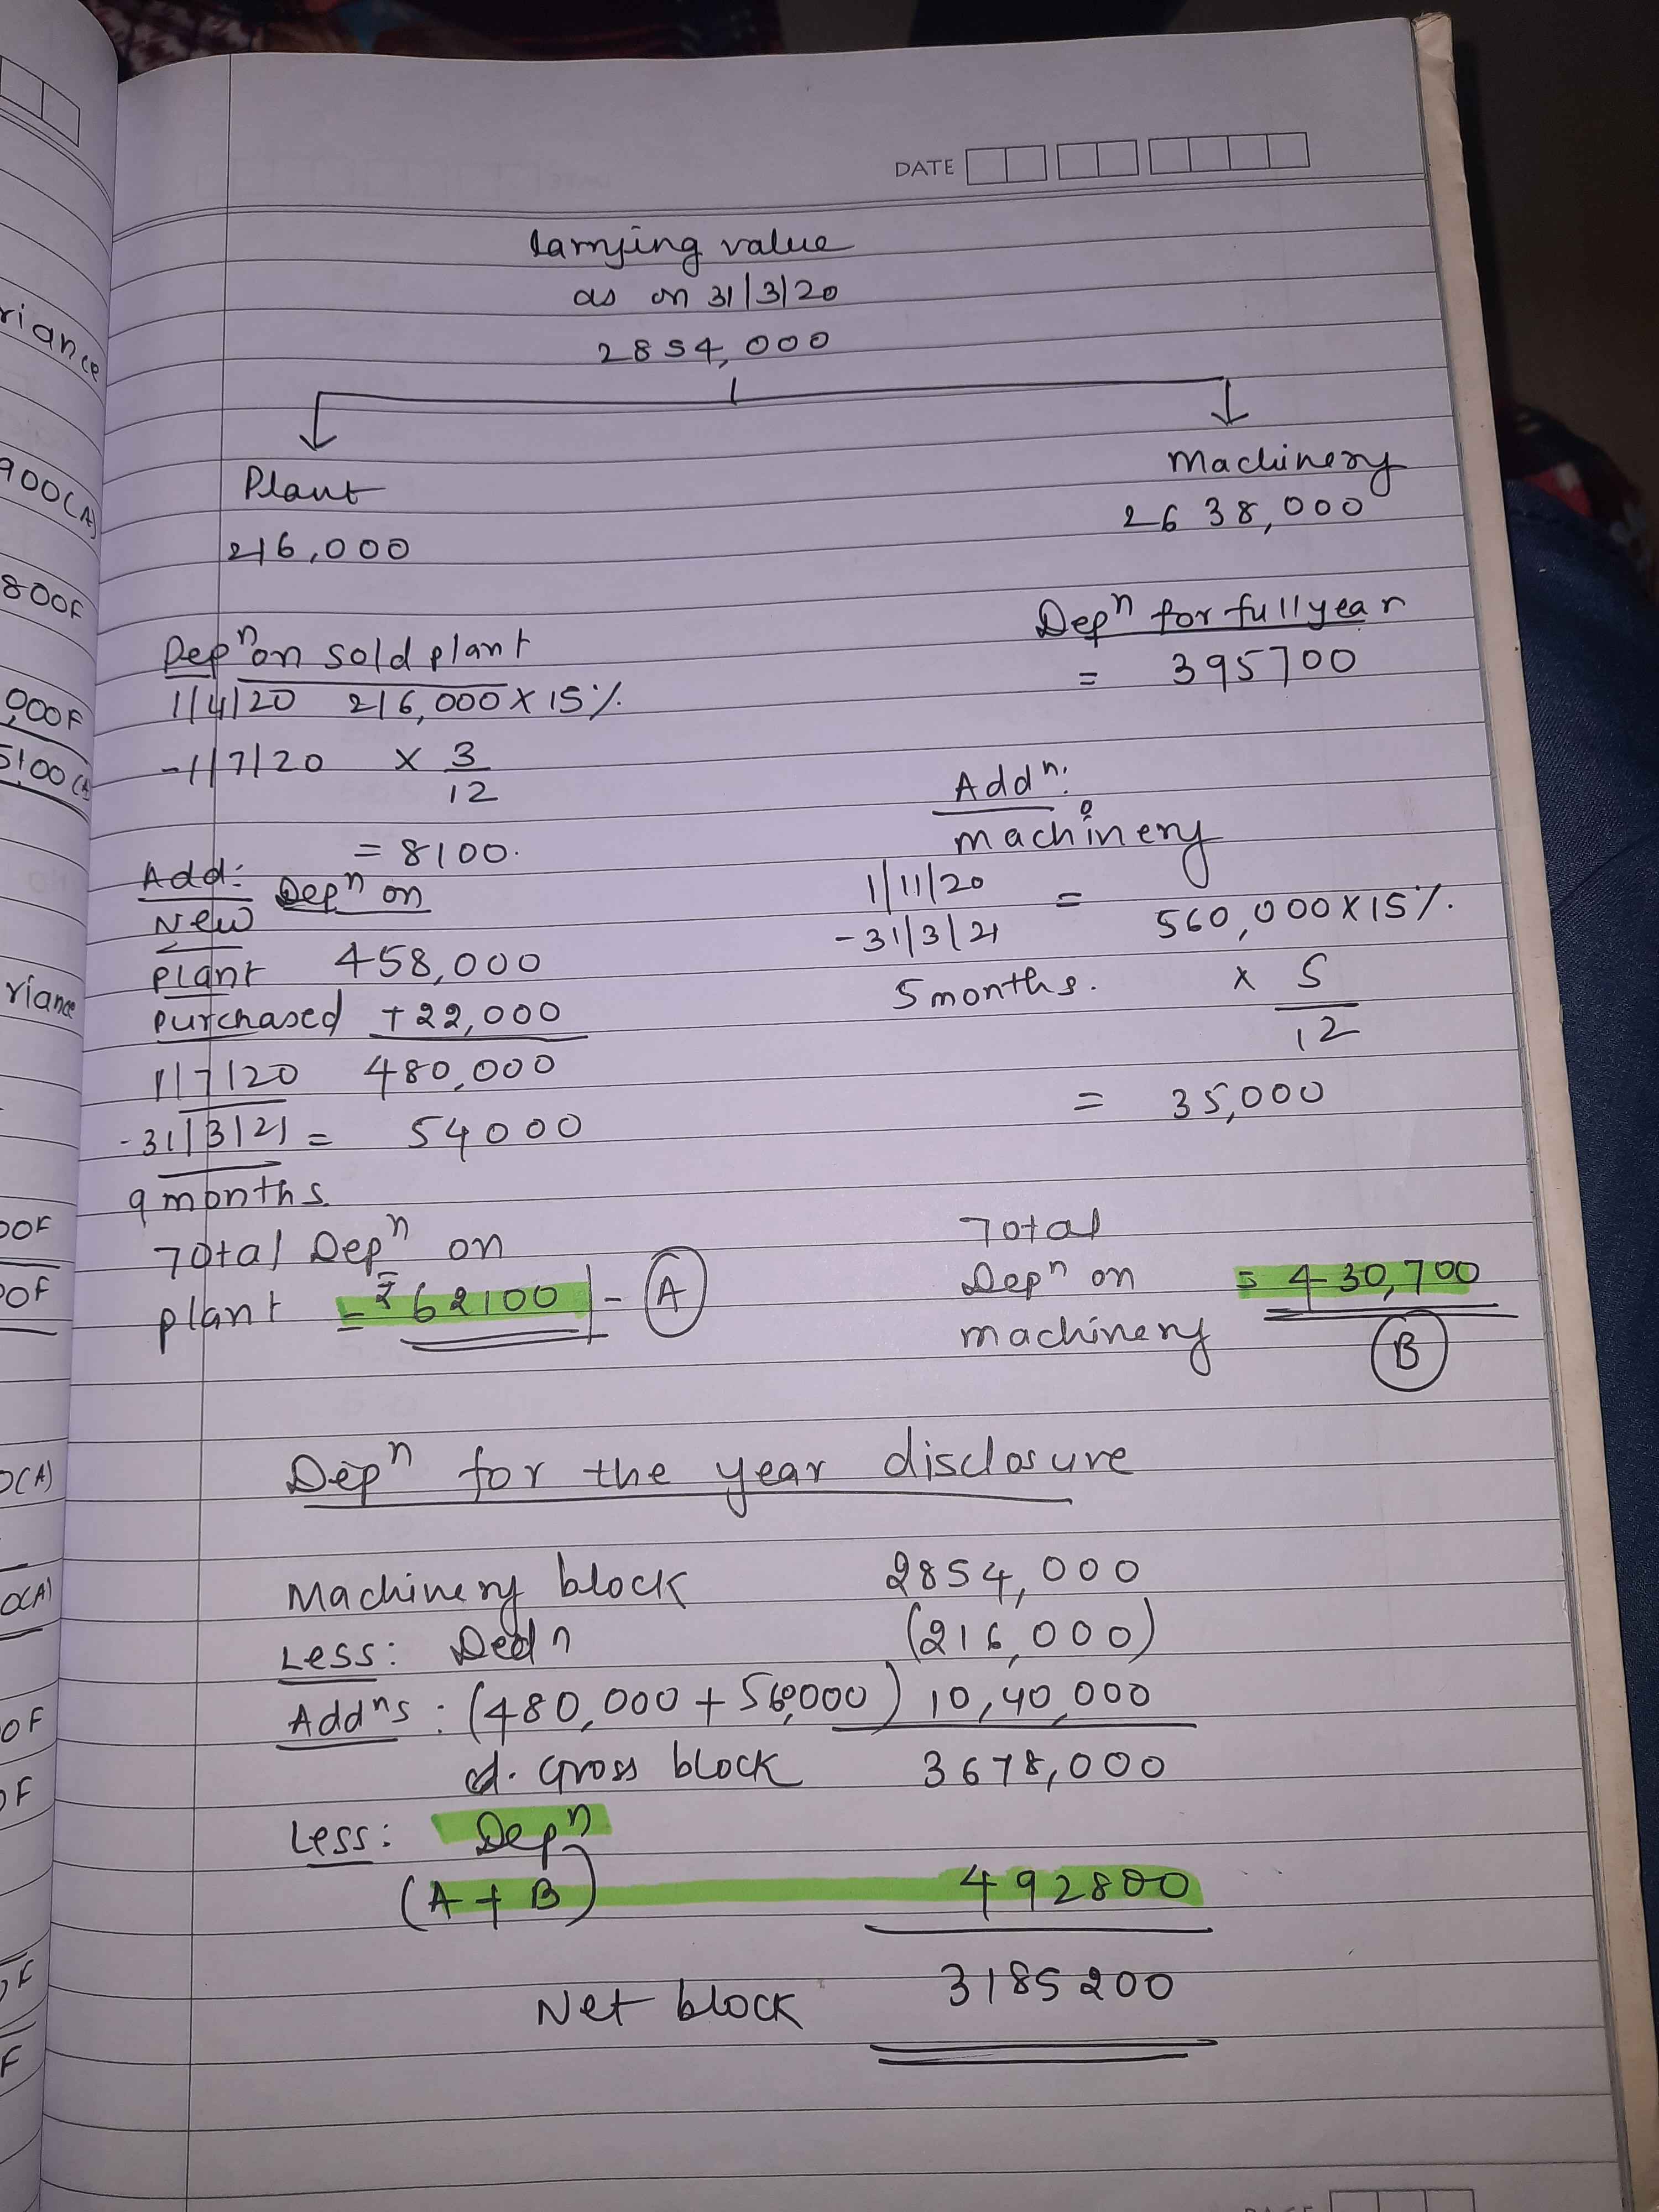 DATE
Carrying value
as on 31/3/20
2854,000
Plant
216,000
Depⁿ on sold plant
1/4/20 216,000 x 15%
-1/7/20 x 3/12
= 8100.
Add: Depⁿ on
New
plant 458,000
purchased +22,000
1/7/20 480,000
-31/3/21 = 54000
9 months
Total Depⁿ on
plant = ₹62100 - (A)
Machinery
2638,000
Depⁿ for full year
= 395700
Addⁿ:
machinery
1/11/20
-31/3/21 = 560,000 x 15%
5 months. x 5/12
= 35,000
Total
Depⁿ on = 430,700
machinery (B)
Depⁿ for the year disclosure
Machinery block 2854,000
Less: Dedn (216,000)
Addⁿs: (480,000 + 560,000) 10,40,000
cl. Gross block 3678,000
Less: Depⁿ
(A + B) 492800
Net block 3185200
riance
900(A)
800F
,000F
5100(A)
riance
00F
0F
0(A)
0(A)
0F
0F
F
F